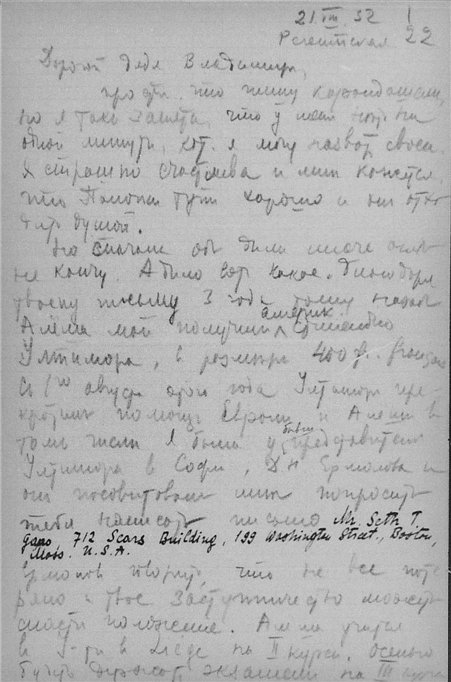 21 VIII 32
22
Дорогой дядя Владимир,
прости что пишу карандашем,
но я так занята, что у меня нет ни
одной минуты, кот. я могу назвать своей.
Я страшно счастлива и мне кажется
что тут хорошо и он
душой.
Но сначала об
не кончу. А было вот какое. Благодаря
твоему письму 3 года тому назад
Алёша мой получил америк. стипендию
Уитимора, в размере 400 francs
Со 1го августа этого года Уитимор пре-
кратил помощь Европе и Алёше в
том числе Я была у бывш. представителя
Уитимора в Софии, Д.Н. Ермолова и
он посоветовал мне попросить
тебя написать письмо Mr. Seth T.
Gano, 712 Sears Building, 199 Washington Street, Boston,
Mass. U.S.A.
Ермолов говорит, что не все поте-
ряно и твое заступничество может
спасти положение. Алеша учится
в на II курсе. Осенью
будет держать экзамены на III курс